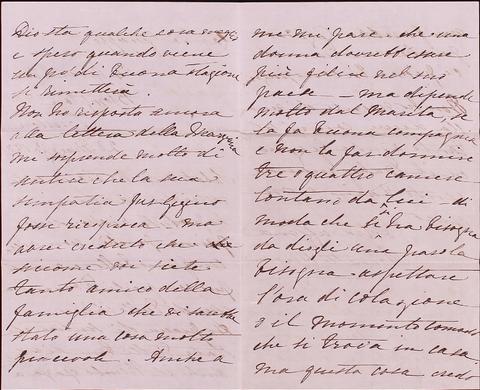 Dio sta qualche cosa
e spero quando viene
un po' di buona stagione
si rimetterà.
Non ho risposto ancora
alla lettera della
mi sorprende molto di
sentire che la sua
simpatia per Gegino
fosse reciproca. ma
avrei creduto che
siccome voi siete
tanto amico della
famiglia che vi sarebbe
stato una cosa molto
piacevole. Anche a
me mi pare che una
donna dovrebb essere
più felice nel suo
paese – ma dipende
molto dal marito, se
la fa buona compagnia
e non la fa dormire
tre o quattro camere
lontano da Lui – di
moda che si ha bisogna
da dirgli una parola
bisogna aspettare
l'ora di colazione
o il momento
che si trova in casa.
ma questa cosa credo